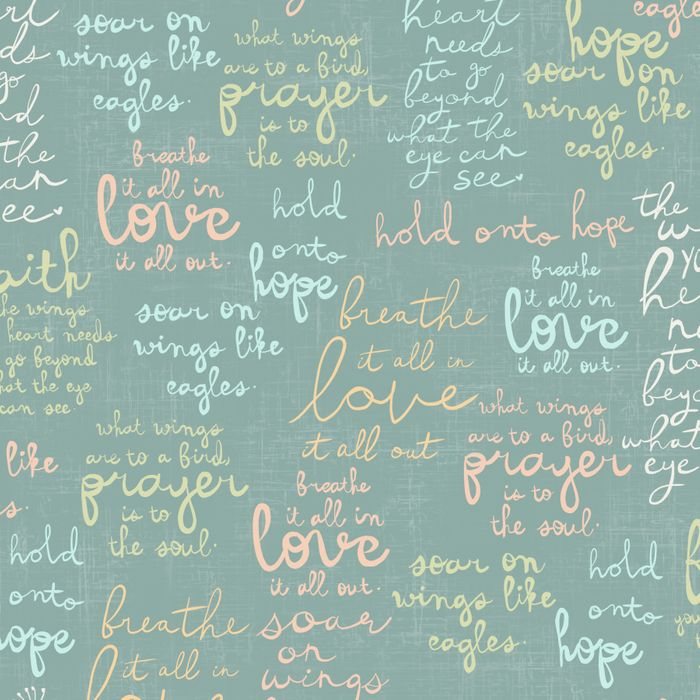 soar on
wings like
eagles.
what wings
are to a bird,
prayer
is to
the soul.
heart
needs
to go
beyond
what the
eye can
see
eagles
hope
soar on
wings like
eagles.
the
see
breathe
it all in
love
it all out.
hold
onto
hope
hold onto hope
the
heart
needs
to
beyond
what
eye
faith
the wings
heart needs
go beyond
what the eye
can see.
soar on
wings like
eagles.
breathe
it all in
love
it all out
breathe
it all in
love
it all out.
what wings
are to a bird,
prayer
is to
the soul.
what wings
are to a bird,
prayer
is to
the soul.
like
breathe
it all in
love
it all out.
hold
onto
hope
soar on
wings like
eagles.
hold
onto
hope
breathe
it all in
soar
on
wings